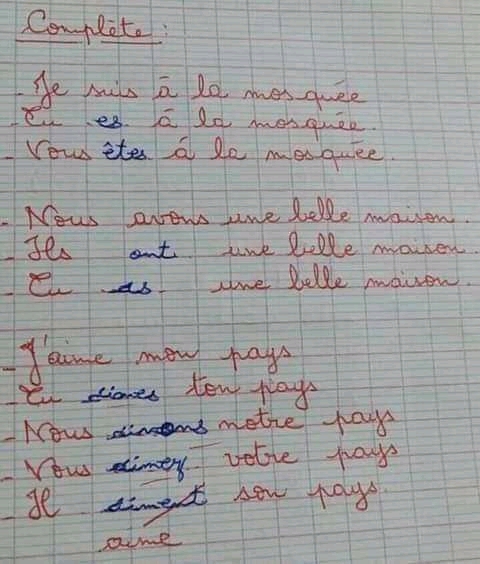 Complète :
- Je suis à la mosquée
- Tu es à la mosquée.
- Vous êtes à la mosquée.
- Nous avons une belle maison.
- Ils ont une belle maison.
- Tu as une belle maison.
- J'aime mon pays
- Tu aimes ton pays
- Nous aimons notre pays
- Vous aimez votre pays
- Il aiment son pays.
aime